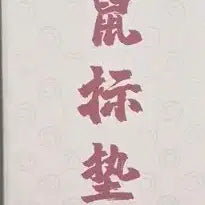 鼠标垫